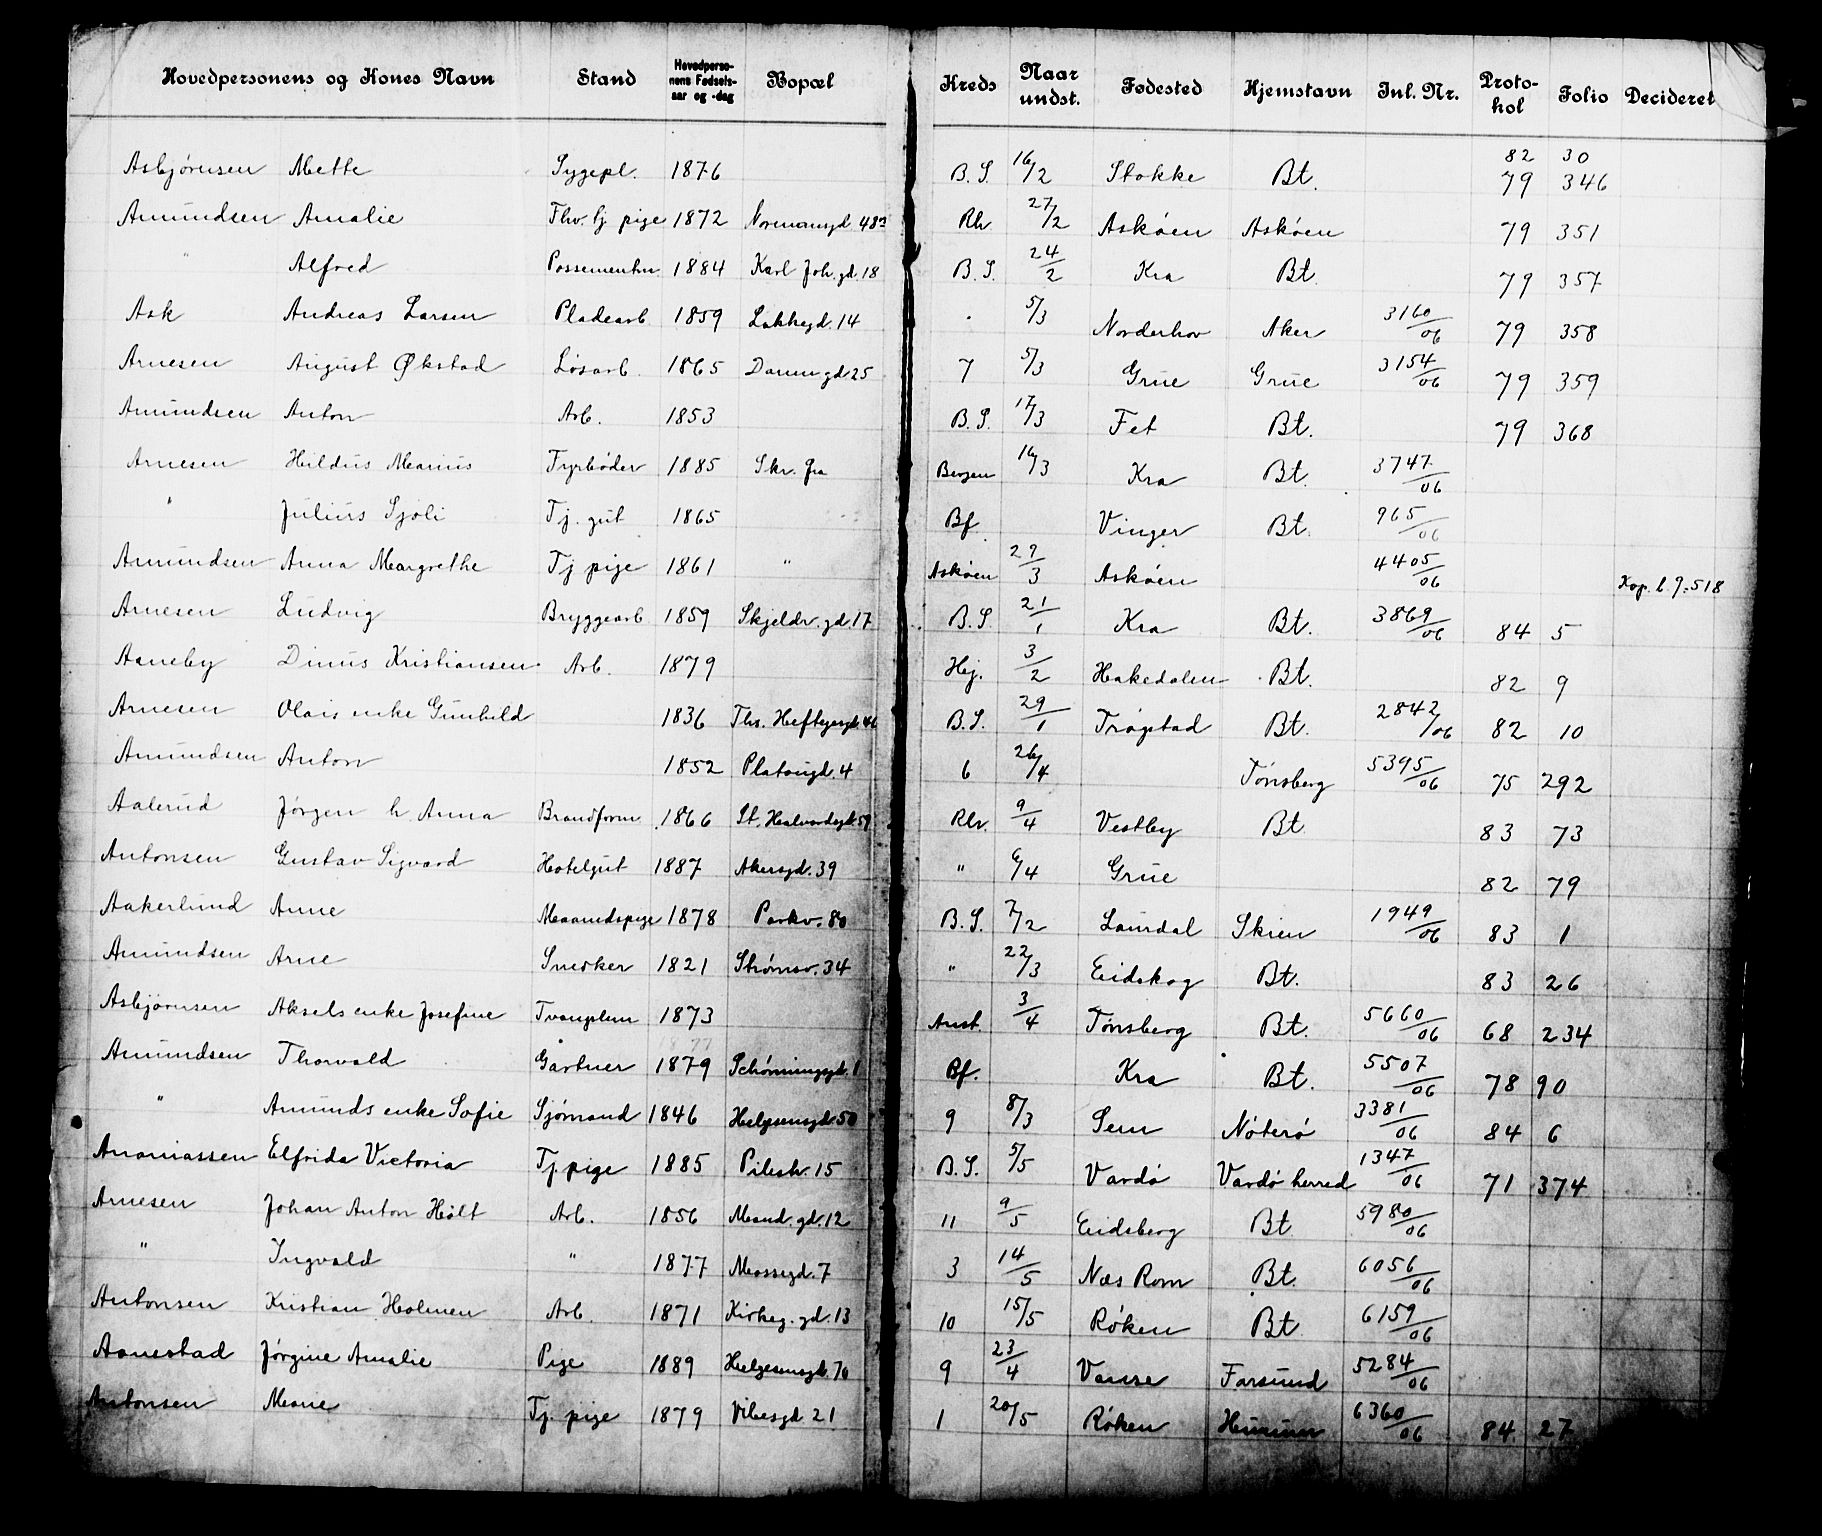 Hovedpersonens og Kones Navn Stand Hovedperso-nens Fødsels-aar og -dag Bopæl Kreds Naar undst. Fødested Hjemstavn Inl. Nr. Proto-kol Folio Decideret
Asbjørnsen Mette Sygepl. 1876 B.S. 16/2 Stokke Bt. 82 30 79 346
Amundsen Amalie Fhv. tj pige 1872 Normansgd 48 Rh 27/2 Askøen Askøen 79 351
" Alfred Possementm 1884 Karl Joh. gd. 18 B.S. 24/2 Kra Bt. 79 357
Ask Andreas Larsen Pladearb 1859 Lakkegd. 14 5/3 Norderhov Aker 3160/06 79 358
Arnesen August Økstad Løsarb. 1865 Damm gd 25 7 5/3 Grue Grue 3154/06 79 359
Amundsen Anton Arb. 1853 B.S. 17/3 Fet Bt. 79 368
Arnesen Hildus Marius Fyrbøder 1885 Skr. fra Bergen 16/3 Kra Bt. 3747/06
" Julius Sjøli Tj. gut 1865 Bf. Vinger Bt. 965/06
Amundsen Anna Margrethe Tj pige 1861 " Askøen 29/3 Askøen 4405/06 Kop. b. 9. 518
Arnesen Ludvig Bryggearb 1859 Skjeldr. gd 17 B.S. 21/1 Kra Bt. 3869/06 84 5
Aaneby Dinus Kristiansen Arb. 1879 Hej. 3/2 Hakedalen Bt. 82 9
Arnesen Olais enke Gunhild 1836 Ths. Heftyesgd. 46 B.S. 29/1 Trøgstad Bt. 2842/06 82 10
Amundsen Anton 1852 Platousgd. 4 6 26/4 Tønsberg 5395/06 75 292
Aalerud Jørgen h Anna Brandform 1866 St. Halvardsgd. 59 Rh. 9/4 Vestby Bt. 83 73
Antonsen Gustav Sigvard Hotelgut 1887 Akersgd. 39 " 6/4 Grue 82 79
Aakerlund Anne Maanedspige 1878 Parkv. 80 B.S. 7/2 Laurdal Skien 1949/06 83 1
Amundsen Arne Snedker 1821 Strømsv. 34 " 22/3 Eidskog Bt. 83 26
Asbjørnsen Aksels enke Josefine Tvangslem 1873 Anst. 3/4 Tønsberg Bt. 5660/06 68 234
Amundsen Thorvald Gartner 1879 Schønningsgd. 1 Bf. Kra Bt. 5507/06 78 90
" Amunds enke Sofie Sjømand 1846 Helgesensgd. 50 9 8/3 Sem Nøterø 3381/06 84 6
Ananiassen Elfrida Victoria Tj. pige 1885 Pilestr. 15 B.S. 5/5 Vardø Vardø herred 1347/06 71 374
Arnesen Johan Anton Holt Arb. 1856 Mand. gd. 12 11 9/5 Eidsberg Bt 5980/06
" Ingvald " 1877 Mossegd. 7 3 14/5 Næs Rom Bt. 6056/06
Antonsen Kristian Holmen Arb. 1871 Kirkeg. gd. 13 10 15/5 Røken Bt 6159/06
Aanestad Jørgine Amalie Pige 1889 Helgesensgd. 70 9 23/4 Vanse Farsund 5284/06
Antonsen Marie Tj. pige 1879 Vibesgd 21 1 20/5 Røken Hurum 6360/06 84 27